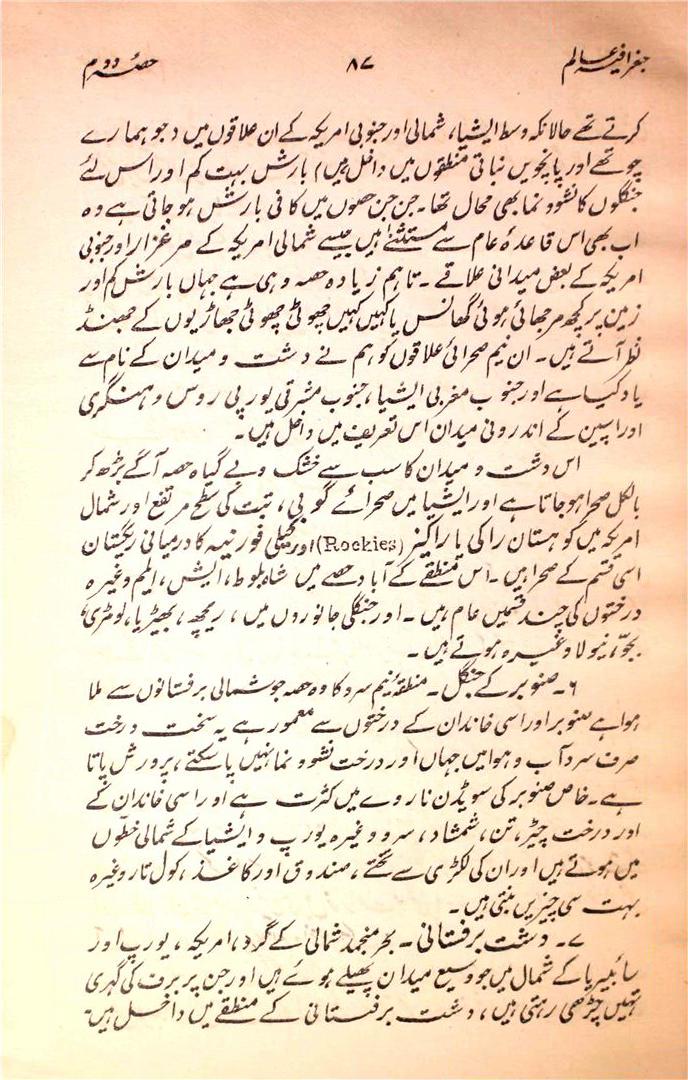 جغرافیہ عالم ۸۷ حصہ دوم
کرتے تھے حالانکہ وسط ایشیا، شمالی اور جنوبی امریکہ کے ان علاقوں میں (جو ہمارے
چوتھے اور پانچویں نباتی منطقوں میں داخل ہیں) بارش بہت کم اور اس لئے
جنگلوں کا نشوونما بھی محال تھا۔ جن جن حصوں میں کافی بارش ہو جاتی ہے وہ
اب بھی اس قاعدۂ عام سے مستثنےٰ ہیں جیسے شمالی امریکہ کے مرغزار اور جنوبی
امریکہ کے بعض میدانی علاقے۔ تاہم زیادہ حصہ وہی ہے جہاں بارش کم اور
زمین پر کچھ مرجھائی ہوئی گھانس یا کہیں کہیں چھوٹی چھوٹی جھاڑیوں کے جھنڈ
نظر آتے ہیں۔ ان نیم صحرائی علاقوں کو ہم نے دشت و میدان کے نام سے
یاد کیا ہے اور جنوب مغربی ایشیا، جنوب مشرقی یورپی روس و ہنگری
اور اسپین کے اندرونی میدان اس تعریف میں داخل ہیں۔
اس دشت و میدان کا سب سے خشک و بے گیاہ حصہ آگے بڑھ کر
بالکل صحرا ہو جاتا ہے اور ایشیا میں صحرائے گوبی، تبت کی سطح مرتفع اور شمال
امریکہ میں کوہستان راکی یا راکیز (Rockies) اور کیلی فورنیہ کا درمیانی ریگستان
اسی قسم کے صحرا ہیں۔ اس منطقے کے آباد حصے میں شاہ بلوط، ایش، ایلم وغیرہ
درختوں کی چند قسمیں عام ہیں۔ اور جنگلی جانوروں میں، ریچھ، بھیڑیا، لومڑی،
بجو، نیولا وغیرہ ہوتے ہیں۔
۶۔ صنوبر کے جنگل۔ منطقۂ نیم سرد کا وہ حصہ جو شمالی برفستانوں سے ملا
ہوا ہے صنوبر اور اسی خاندان کے درختوں سے معمور ہے یہ سخت درخت
صرف سرد آب و ہوا میں جہاں اور درخت نشوونما نہیں پا سکتے، پرورش پاتا
ہے۔ خاص صنوبر کی سویڈن ناروے میں کثرت ہے اور اسی خاندان کے
اور درخت چیڑ، تن، شمشاد، سرو وغیرہ یورپ و ایشیا کے شمالی خطوں
میں ہوتے ہیں اور ان کی لکڑی سے تختے، صندوق اور کاغذ، کول تار وغیرہ
بہت سی چیزیں بنتی ہیں۔
۷۔ دشت برفستانی۔ بحر منجمد شمالی کے گرد، امریکہ، یورپ اور
سائبیریا کے شمال میں جو وسیع میدان پھیلے ہوئے ہیں اور جن پر برف کی گہری
تہیں چڑھی رہتی ہیں، دشت برفستانی کے منطقے میں داخل ہیں۔